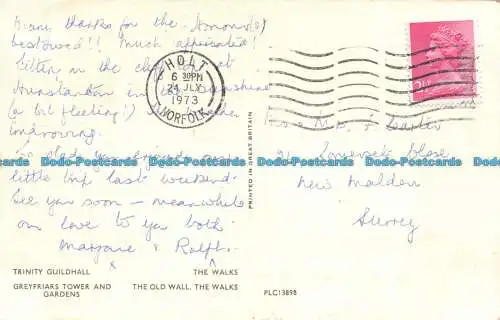 Many thanks for the
bestowed!! Much appreciated!
Sitting in the
Hunstanton in
(a bit fleeting!)
improving.
So glad you enjoyed your
little trip last weekend.
See you soon - meanwhile
our love to you both
Marjorie & Ralph.
HOLT
6 30PM
24 JLY
1973
NORFOLK
Somerset Close
New Malden
Surrey
PRINTED IN GREAT BRITAIN
Dodo-Postcards Dodo-Postcards Dodo-Postcards Dodo-Postcards Dodo-Postcards
TRINITY GUILDHALL THE WALKS
GREYFRIARS TOWER AND GARDENS THE OLD WALL, THE WALKS
PLC13898